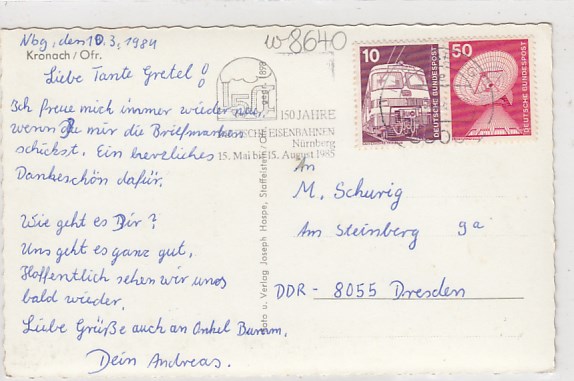 Nbg, den 10.3.1984
Kronach / Ofr.
Liebe Tante Gretel!
Ich freue mich immer wieder neu,
wenn Du mir die Briefmarken
schickst. Ein herzliches
Dankeschön dafür.
Wie geht es Dir?
Uns geht es ganz gut,
Hoffentlich sehen wir uns
bald wieder.
Liebe Grüße auch an Onkel
Dein Andreas.
Foto u. Verlag Joseph Haspe, Staffelstein/Ofr.
w-8640
150 JAHRE
DEUTSCHE EISENBAHNEN
Nürnberg
15. Mai bis 15. August 1985
10
DEUTSCHE BUNDESPOST
50
DEUTSCHE BUNDESPOST
An
M. Schurig
Am Steinsberg 9a
DDR - 8055 Dresden